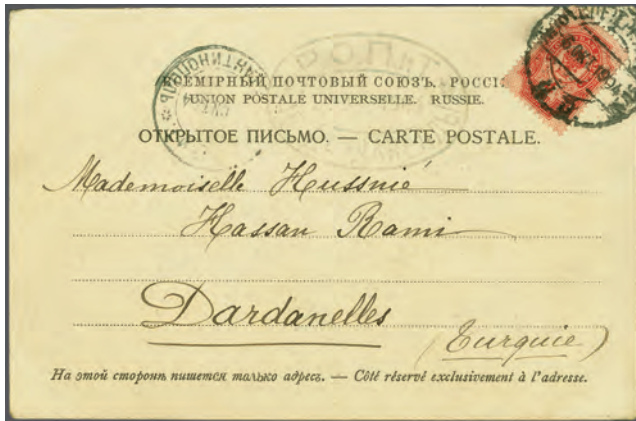 ВСЕМІРНЫЙ ПОЧТОВЫЙ СОЮЗЪ. РОССІЯ
UNION POSTALE UNIVERSELLE. RUSSIE.
ОТКРЫТОЕ ПИСЬМО. — CARTE POSTALE.
Mademoiselle Hussnié
Hassan Rami
Dardanelles
(Turquie)
На этой сторонѣ пишется только адресъ. — Côté réservé exclusivement à l'adresse.